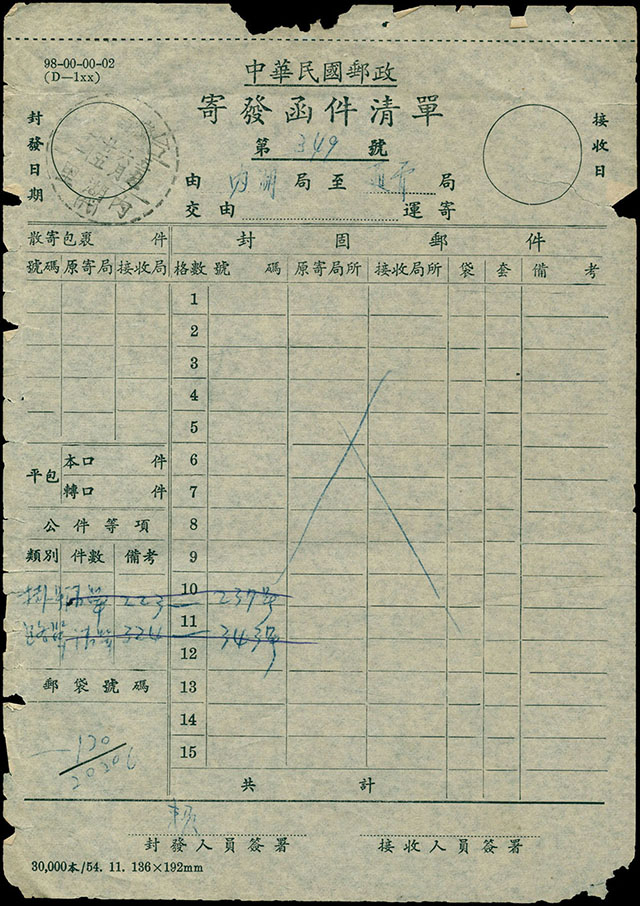 98-00-00-02
(D—1xx)
中華民國郵政
寄發函件清單
第 349 號
封發日期
接收日
由 內湖 局至 局
交由 運寄
散寄包裹 件 封固郵件
號碼 原寄局 接收局 格數 號碼 原寄局所 接收局所 袋 套 備考
1
2
3
4
5
平包 本口 件 6
轉口 件 7
公件等項 8
類別 件數 備考 9
10
掛 單 223—237號
11
清單 324—343號
12
郵袋號碼 13
14
120
20206
15
共計
賴
封發人員簽署 接收人員簽署
30,000本/54. 11. 136×192mm